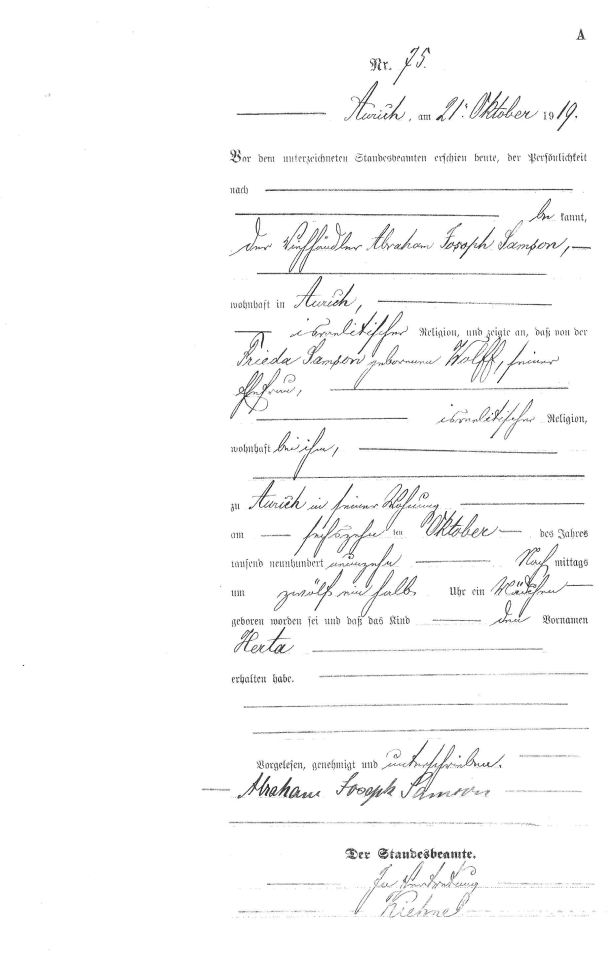 A
Nr. 75.
Aurich, am 21. Oktober 1919.
Vor dem unterzeichneten Standesbeamten erschien heute, der Persönlichkeit
nach
be kannt,
der Viehhändler Abraham Joseph Samson,
wohnhaft in Aurich,
israelitischer Religion, und zeigte an, daß von der
Frieda Samson geborenen Wolff, seiner
Ehefrau,
israelitischer Religion,
wohnhaft bei ihm,
zu Aurich in seiner Wohnung
am sechszehn ten Oktober des Jahres
tausend neunhundert neunzehn Nach mittags
um zwölf ein halb Uhr ein Mädchen
geboren worden sei und daß das Kind den Vornamen
Herta
erhalten habe.
Vorgelesen, genehmigt und unterschrieben.
Abraham Joseph Samson
Der Standesbeamte.
In Vertretung